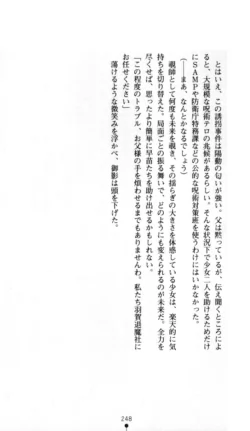 とはいえ、この誘拐事件は陽動の匂いが強い。父は黙っているが、伝え聞くところによ
ると、大規模な呪術テロの兆候があるらしい。そんな状況下で少女二人を助けるためだけ
にSAMPや防衛庁特務課などの公的な呪術対策班を使うわけにはいかなかった。
（――まあ、なんとかなるでしょう）
覡師として何度も未来を覗き、その揺らぎの大きさを体感している少女は、楽天的に気
持ちを切り替えた。局面ごとの振る舞いで、どのようにも変えられるのが未来だ。全力を
尽くせば、思ったより簡単に早苗たちを助け出せるかもしれない。
「この程度のトラブル、お父様の手を煩わせるまでもありませんわ。私たち羽賀退魔社に
お任せください」
蕩けるような微笑みを浮かべ、御影は頭を下げた。
248